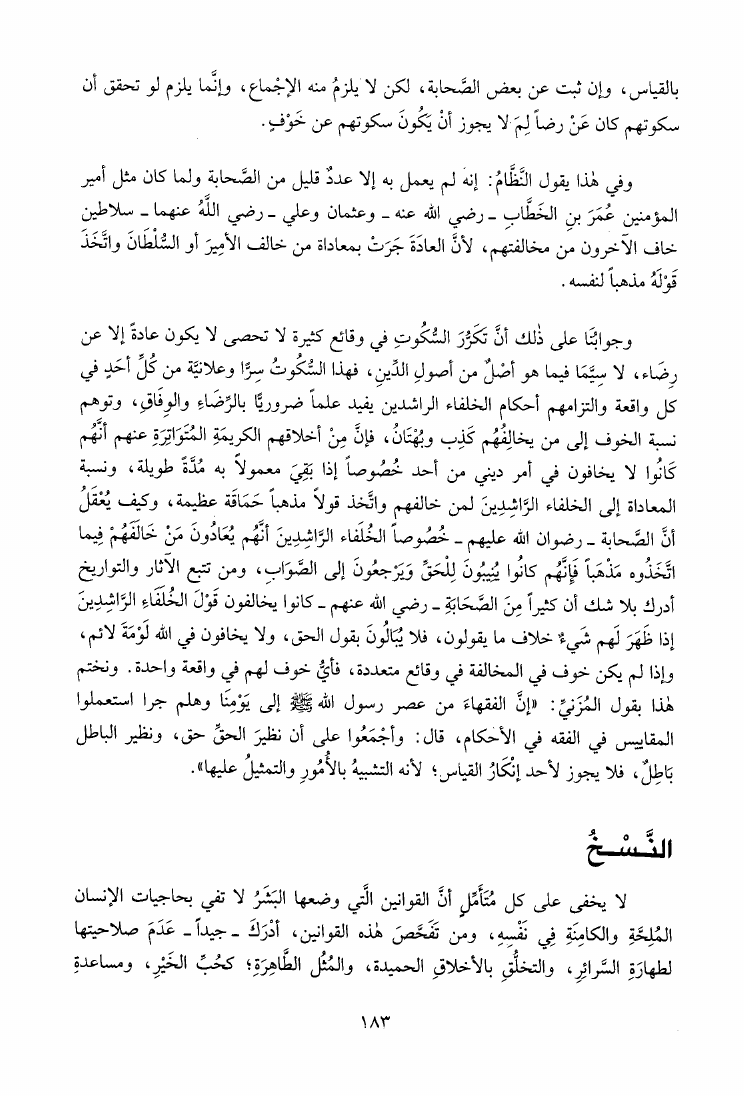 بالقياس، وإن ثبت عن بعض الصَّحابة، لكن لا يلزمُ منه الإجْماع، وإنَّما يلزم لو تحقق أن
سكوتهم كان عَنْ رضاً لِمَ لا يجوز أنْ يَكُونَ سكوتهم عن خَوْفٍ.
وفي هٰذا يقول النَّظَّامُ: إنه لم يعمل به إلا عددٌ قليل من الصَّحابة ولما كان مثل أمير
المؤمنين عُمَرَ بنِ الخَطَّابِ ـ رضي الله عنه ـ وعثمان وعلي ـ رضي اللَّهُ عنهما ـ سلاطين
خاف الآخرون من مخالفتهم، لأنَّ العادَةَ جَرَتْ بمعاداة من خالف الأمِيرَ أو السُّلْطَانَ واتَّخَذَ
قَوْلَهُ مذهباً لنفسه.
وجوابُنَا على ذٰلك أنَّ تَكَرُّرَ السُّكُوتِ في وقائع كثيرة لا تحصى لا يكون عادةً إلا عن
رِضَاء، لا سِيَّمَا فيما هو أصْلٌ من أصولِ الدِّينِ، فهذا السُّكُوتُ سِرًّا وعلانيَّة من كُلِّ أحَدٍ في
كل واقعة والتزامهم أحكام الخلفاء الراشدين يفيد علماً ضروريًّا بالرِّضَاءِ والوِفَاقِ، وتوهم
نسبة الخوف إلى من يخالِفُهُم كَذِب وبُهْتَانُ، فإنَّ مِنْ أخلاقهم الكريمَةِ المُتَوَاتِرَةِ عنهم أنَّهُم
كَانُوا لا يخافون في أمر ديني من أحد خُصُوصاً إذا بَقِيَ معمولاً به مُدَّةً طويلة، ونسبة
المعاداة إلى الخلفاء الرَّاشِدِينَ لمن خالفهم واتَّخذ قولاً مذهباً حَمَاقَة عظيمة، وكيف يُعْقَلُ
أنَّ الصَّحابة ـ رضوان الله عليهم ـ خُصُوصاً الخُلَفاء الرَّاشِدِينَ أنَّهُم يُعَادُونَ مَنْ خَالَفَهُمْ فِيما
اتَّخَذُوه مَذْهَباً فَإنَّهُم كانُوا يُنِيبُونَ لِلْحَقِّ وَيَرْجعُونَ إلى الصَّوَابِ، ومن تتبع الآثار والتواريخ
أدرك بلا شك أن كثيراً مِنَ الصَّحَابَةِ ـ رضي الله عنهم ـ كانوا يخالفون قَوْلَ الخُلَفَاءِ الرَّاشِدِينَ
إذا ظَهَرَ لَهم شَيءٌ خلاف ما يقولون، فلا يُبَالُونَ بقول الحق، ولا يخافون في الله لَوْمَةَ لائم،
وإذا لم يكن خوف في المخالفة في وقائع متعددة، فأيُّ خوف لهم في واقعة واحدة. ونختم
هٰذا بقول المُزَنيِّ: «إنَّ الفقهاءَ من عصر رسول الله ﷺ إلى يَوْمِنَا وهلم جرا استعملوا
المقاييس في الفقه في الأحكام، قال: وأجْمَعُوا على أن نظيرَ الحقِّ حق، ونظير الباطل
بَاطِلٌ، فلا يجوز لأحد إنْكَارُ القياس؛ لأنه التشبيهُ بالأُمُورِ والتمثيلُ عليها».
النَّسْخُ
لا يخفى على كل مُتَأَمِّلٍ أنَّ القوانين الَّتي وضعها البَشَرُ لا تفي بحاجيات الإنسان
المُلِحَّةِ والكامِنَةِ فِي نَفْسِهِ، ومن تَفَحَّصَ هٰذه القوانين، أدْرَكَ ـ جيداً ـ عَدَمَ صلاحيتها
لطهارَةِ السَّرائرِ، والتخلُّقِ بالأخلاقِ الحميدة، والمُثُل الطَّاهِرَةِ؛ كحُبِّ الخَيْرِ، ومساعدةِ
١٨٣